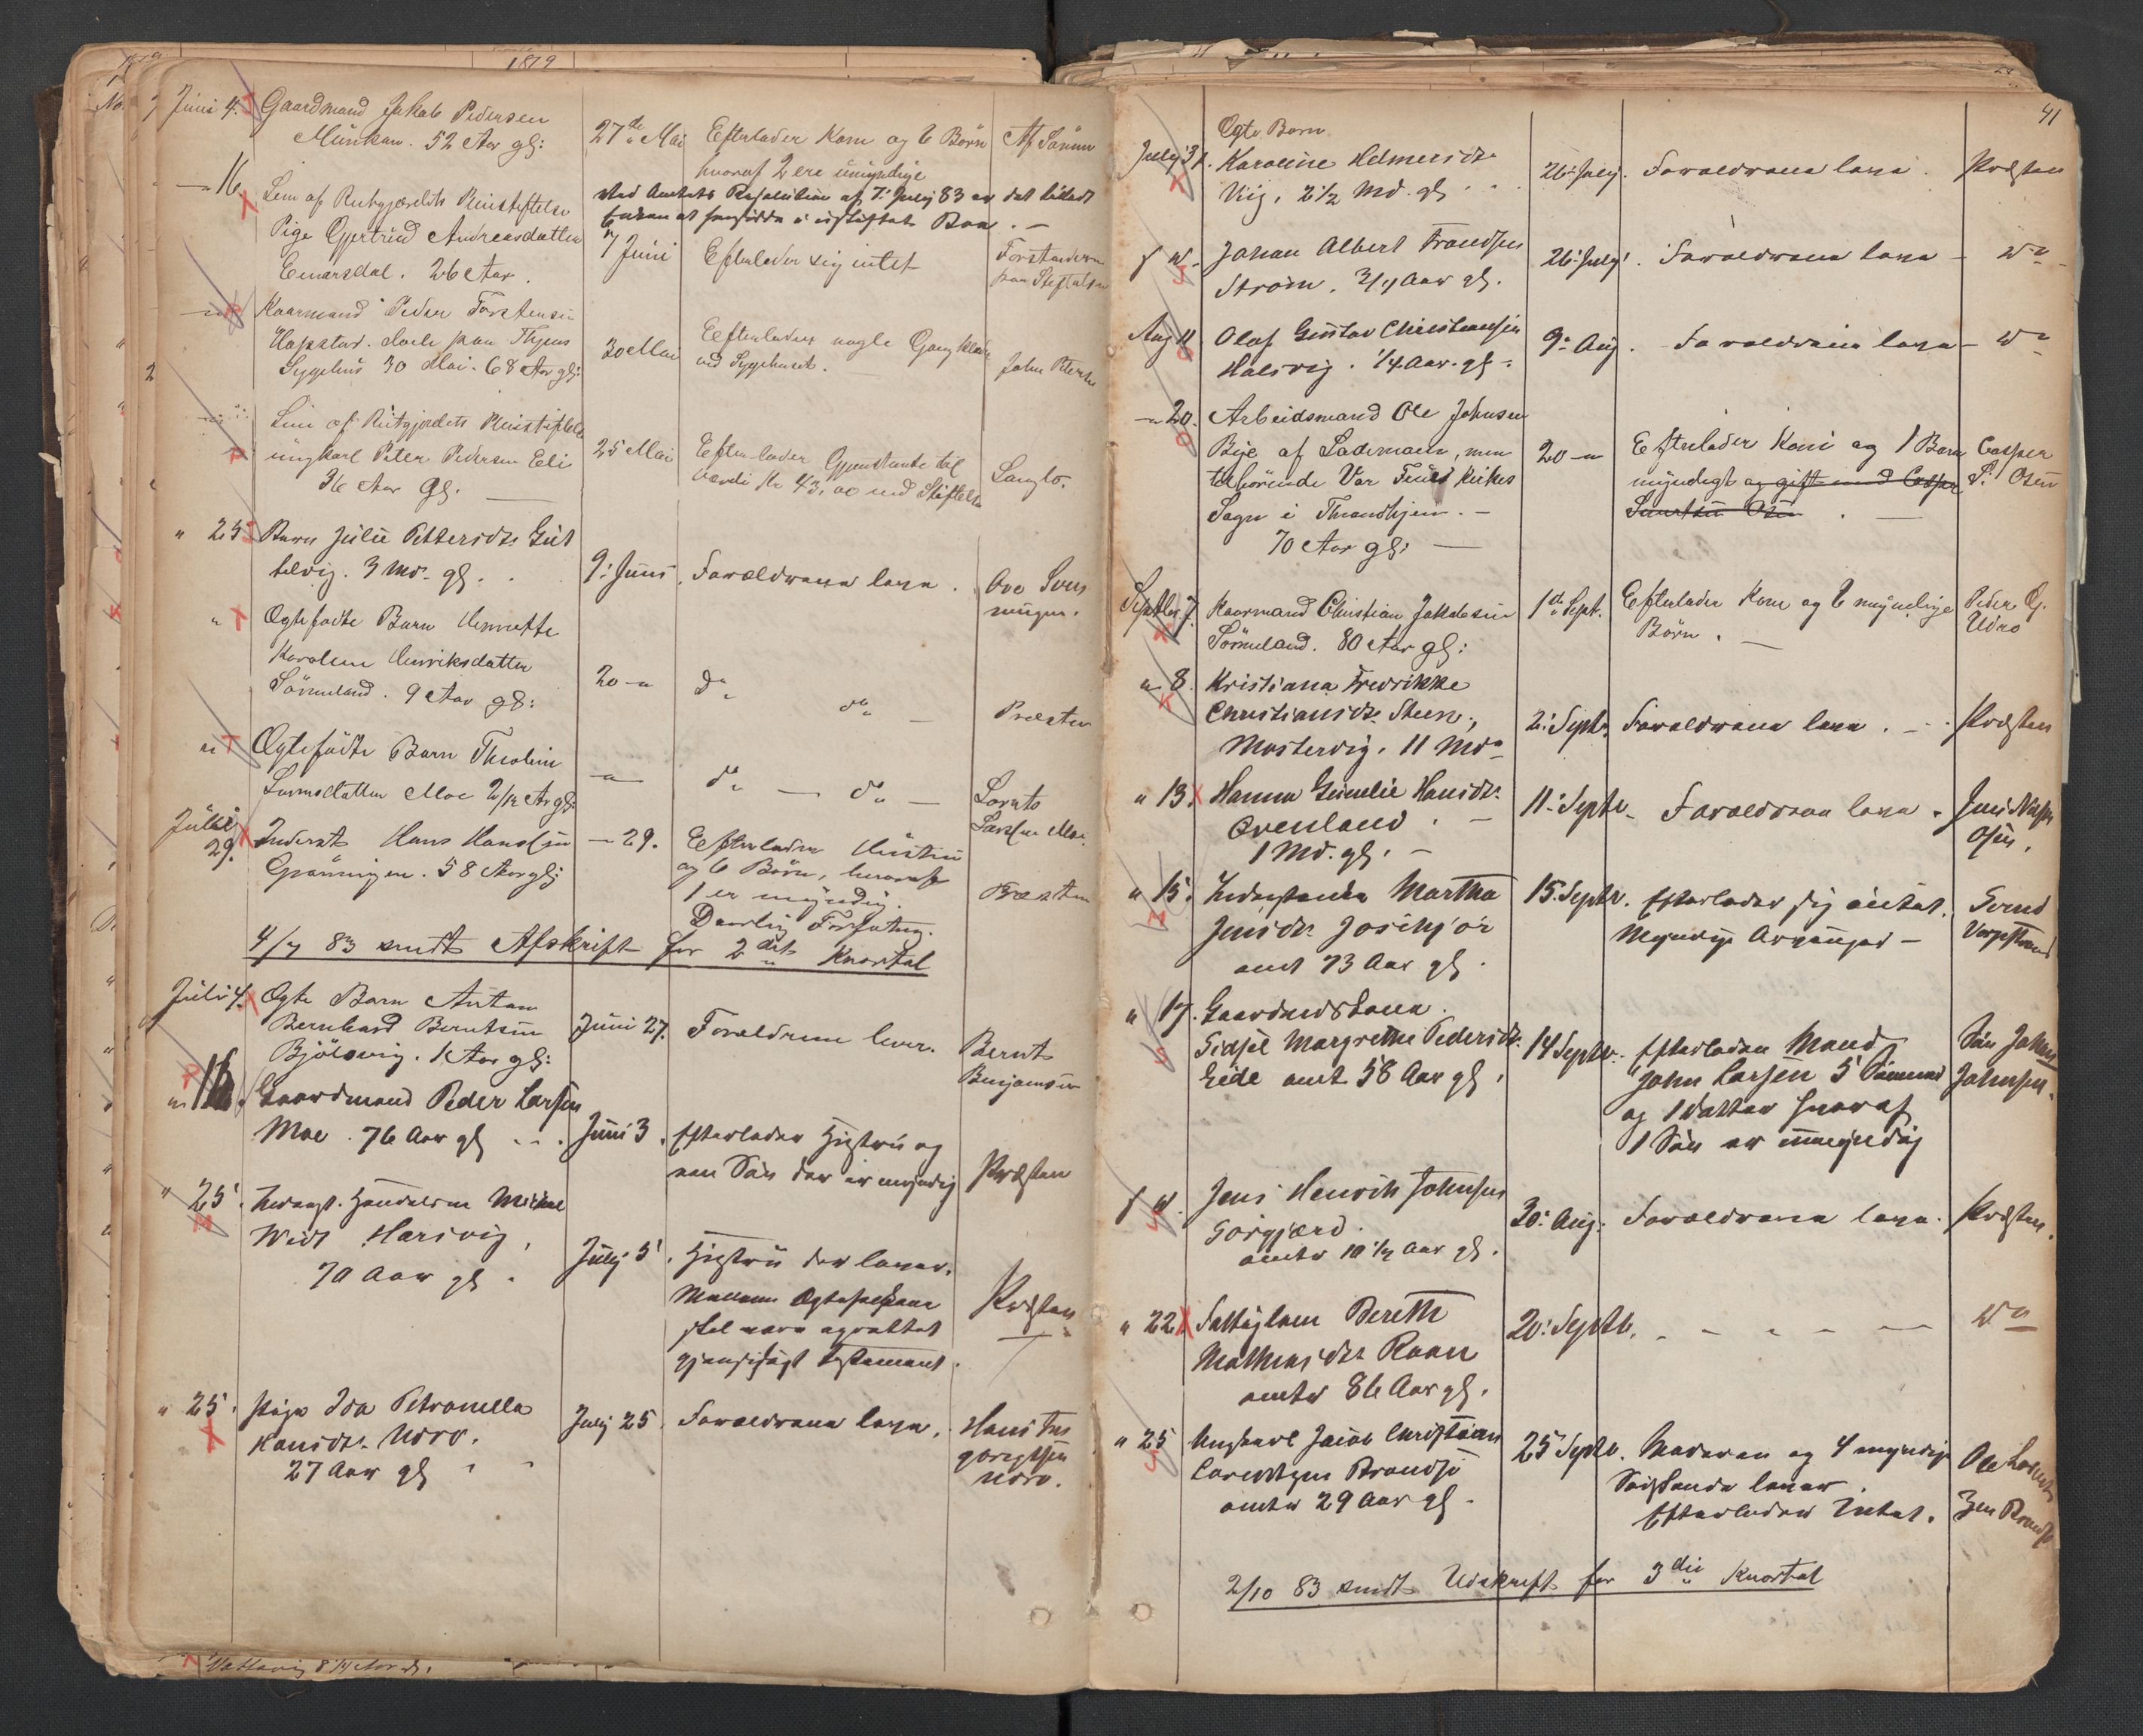 1879
Juni 4. Gaardmand Jakob Pedersen
Munkan. 52 Aar gl:
27de Mai
Efterlader Kone og 6 Børn
hvoraf 2 ere umyndige
16
Lem af Reitgjærdets Pleiestiftelse
Pige Gjertrud Andreasdatter
Einarsdal. 26 Aar.
ved Amtets Resolution af 7. July 83 er det tilladt
Enken at hensidde i uskiftet Bo. —
7 Juni
Efterlader sig intet
Forstanderen
paa Stiftelsen
Kaarmand Peder Torstensen
Hopstad. døde paa Thjems
Sygehus 30 Mai. 68 Aar gl:
30 Mai
Efterlader nogle Gangklæder
ved Sygehuset.
John Petersen
Lem af Reitgjerdets Pleiestiftelse
ungkarl Peter Pedersen Eli
36 Aar gl. —
25 Mai
Efterlader Gjenstande til
værdi Kr 43,00 ved Stiftelsen
Langlo.
" 25 Barn Julie Pettersdt.
telvig. 3 Md. gl.
9. Juni.
Forældrene leve.
Ove Svenningen.
" Ægtefødte Barn Henrette
Karoline Henriksdatter
Sörmeland. 9 Aar gl:
20 –"
do do —
Præsten
" Ægtefødte Barn Theoline
Larsdatter Moe 2/12 Ar gl:
—"—
do — do —
Lorents
Larsen Moe.
Juli 29. Inderst Hans Hansen
Grönningen. 58 Aar gl:
— 29.
Efterlader Hustru
og 6 Börn, hvoraf
1 er myndig.
Daarlig Forfatning.
Præsten
4/7 83 sendt Afskrift for 2det Kvartal
Juli 4. Ægte Barn Anton
Bernhard Berntsen
Bjölavig. 1 Aar gl:
Juni 27.
Forældrene lever.
Bernt
Benjaminsen
" 16. Gaardmand Peder Larsen
Moe. 76 Aar gl
Juni 3.
Efterlader Hustru og
een Sön der er myndig
Præsten
" 25. Handelsm Michael
Widt Harsvig,
70 Aar gl.
July 5.
Hustru der lever.
Mellem Ægtefolkene
skal være oprettet
gjensidigt Testament.
Præsten
" 25. Pige Ida Petronella
Hansdt. Urro.
27 Aar gl
July 25.
Forældrene leve.
Hans
Urro.
41
Ægte Barn
July 31. Karoline Helmersdt.
Vig, 2½ Md. gl
26. July.
Forældrene leve.
Præsten
s. d. Johan Albert Frandsen
Ström. 3/4 Aar gl.
26. July.
Forældrene leve —
do
Aug 11 Olaf Gustav Christiansen
Halsvig. 1/4 Aar. gl.
9. Aug.
Forældrene leve —
do
— 20. Arbeidsmand Ole Johnsen
Bye af Lademoen, men
tilhörende Vor Frues Kirkes
Sogn i Throndhjem. —
70 Aar gl: —
20 —"
Efterlader Kone og 1 Barn
myndigt og gift med Casper
Osen.
Casper
S. Osen
Septbr. 7. Kaarmand Christian Jakobsen
Sörmeland. 80 Aar gl:
1de Sept.
Efterlader Kone og 6 myndige
Börn. —
Peder G.
Udro
" 8. Kristiana Fredrikke
Christiansdt. Steen,
Mastervig. 11 Mdr
2. Septr.
Forældrene leve. —
Præsten
" 13. Hanna Gunelie Hansdt.
Qvenland. —
1 Md. gl. —
11. Septr.
Forældrene leve.
Jens
Osen.
" 15. Martha
Jensdt. Josehjör
omt 73 Aar gl.
15. Septr.
Efterlader sig intet.
Myndige Arvinger —
Svend
Vargstrand
" 17. Gaardmdskone.
Sidsel Margrethe Pedersdt.
Eide omt 58 Aar gl.
14 Septr.
Efterlader Mand
John Larsen 5 Sönner
og 1 datter hvoraf
1 Sön er umyndig
Sön Johan
Johnsen.
s. d. Jens Henrik Johnsen
Torgjerd.
omtr 10½ Aar gl.
30. Aug.
Forældrene leve.
Præsten.
" 22. Fattiglem Bereth
Mathiasdt. Raan
omtr 86 Aar gl.
20. Septb.
— — — — —
do
" 25 Ungkarl Jacob Christian
Lorentzen Brandsö
omtr 29 Aar gl.
25 Septr.
Moderen og 4 myndige
Södskende lever.
Efterlader Intet.
Ole
Brandsö
2/10 83 sendt Udskrift for 3die Kvartal